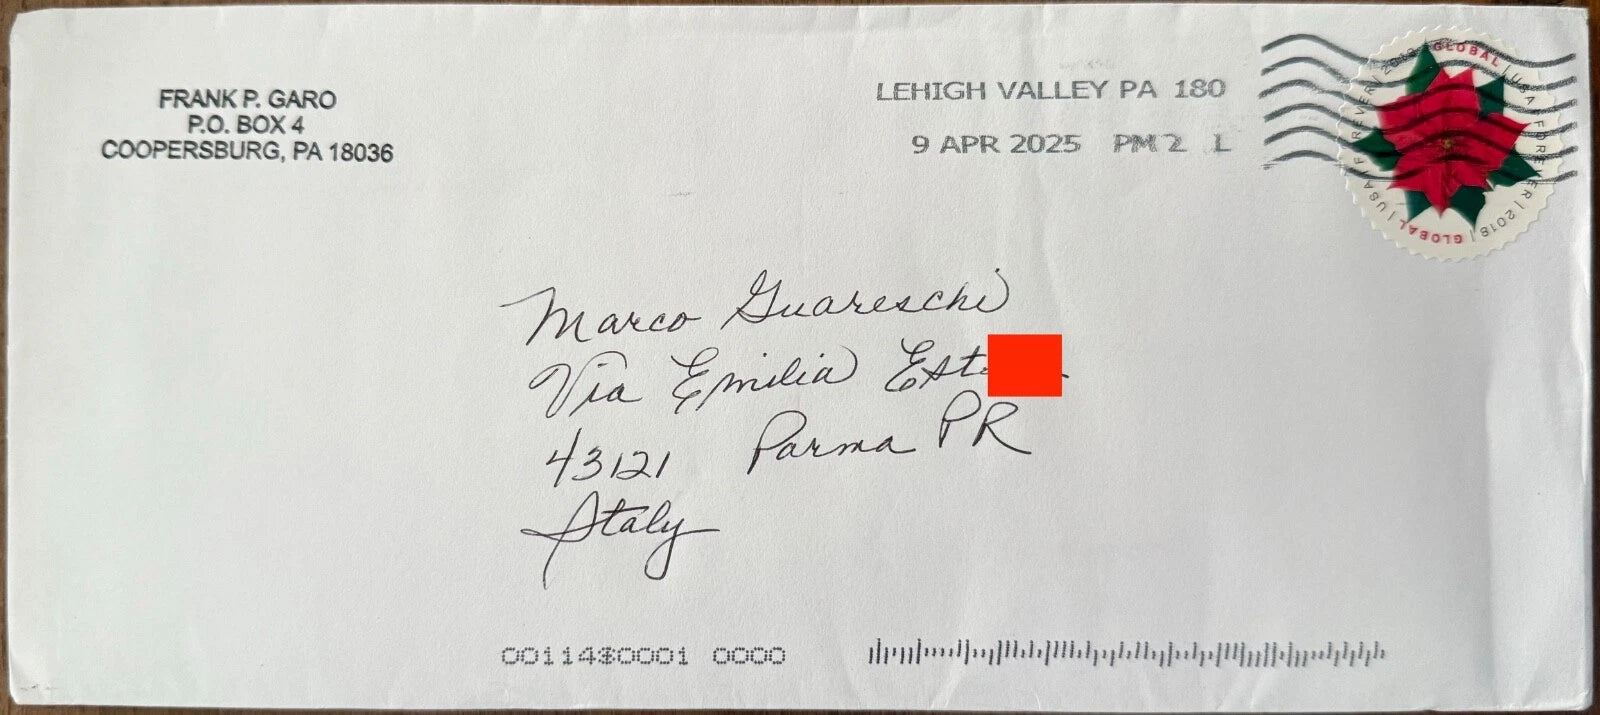 FRANK P. GARO
P.O. BOX 4
COOPERSBURG, PA 18036
LEHIGH VALLEY PA 180
9 APR 2025 PM 2 L
GLOBAL | USA FOREVER | 2018 | GLOBAL | USA FOREVER | 2018
Marco Guareschi
Via Emilia
43121 Parma PR
Italy
0000